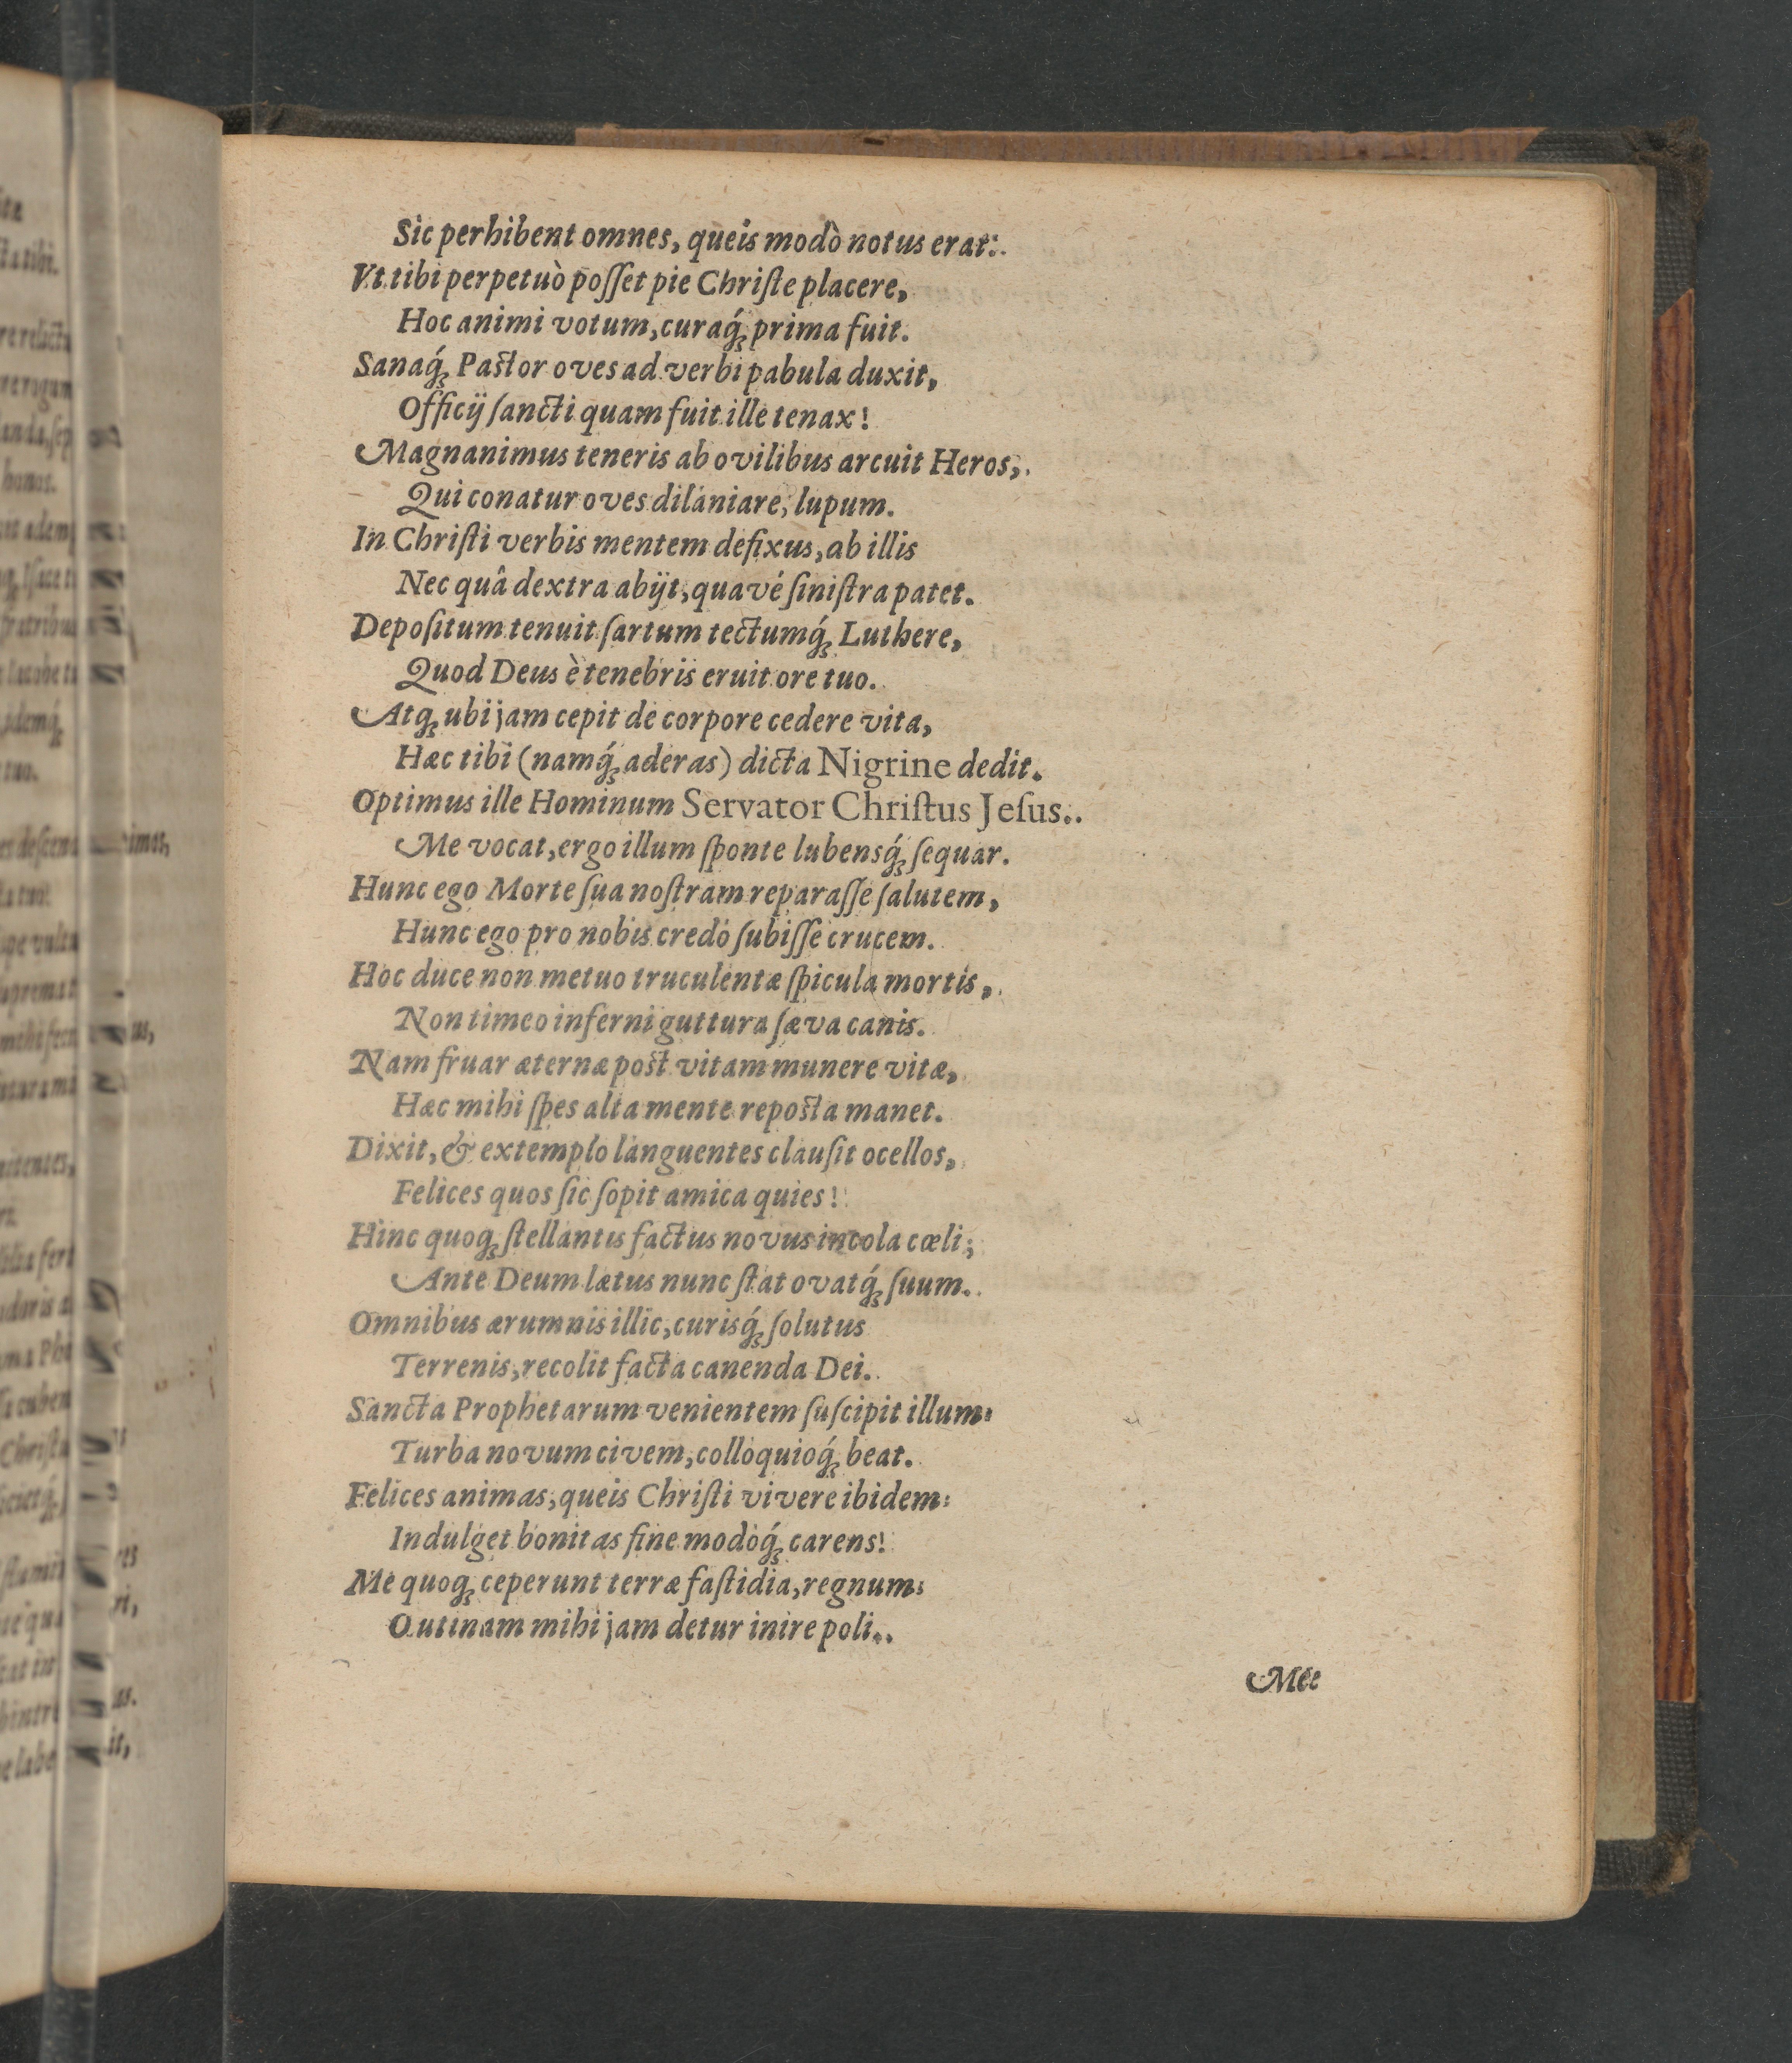 Sic perhibent omnes, queis modò notus erat:
Vt tibi perpetuò poſſet pie Chriſte placere,
Hoc animi votum, curaq́; prima fuit.
Sanaq́; Paſtor oves ad verbi pabula duxit,
Officij ſancti quam fuit ille tenax!
Magnanimus teneris ab ovilibus arcuit Heros,
Qui conatur oves dilaniare, lupum.
In Chriſti verbis mentem defixus, ab illis
Nec quâ dextra abijt, quavé ſiniſtra patet.
Depoſitum tenuit ſartum tectumq́; Luthere,
Quod Deus è tenebris eruit ore tuo.
Atq; ubi jam cepit de corpore cedere vita,
Hæc tibi (namq́; aderas) dicta Nigrine dedit.
Optimus ille Hominum Servator Chriſtus Jeſus..
Me vocat, ergo illum ſponte lubensq́; ſequar.
Hunc ego Morte ſua noſtram reparaſſe ſalutem,
Hunc ego pro nobis credo ſubiſſe crucem.
Hoc duce non metuo truculentæ ſpicula mortis,
Non timeo inferni guttura ſæva canis.
Nam fruar æternæ poſt vitam munere vitæ,
Hæc mihi ſpes alta mente repoſta manet.
Dixit, & extemplo languentes clauſit ocellos,
Felices quos ſic ſopit amica quies!
Hinc quoq; ſtellantis factus novus incola cœli,
Ante Deum lætus nunc ſtat ovatq́; ſuum.
Omnibus ærumnis illic, curisq́; ſolutus
Terrenis, recolit facta canenda Dei.
Sancta Prophetarum venientem ſuſcipit illum:
Turba novum civem, colloquioq́; beat.
Felices animas, queis Chriſti vivere ibidem:
Indulget bonitas fine modoq́; carens!
Me quoq; ceperunt terræ faſtidia, regnum:
O utinam mihi jam detur inire poli..
Mee